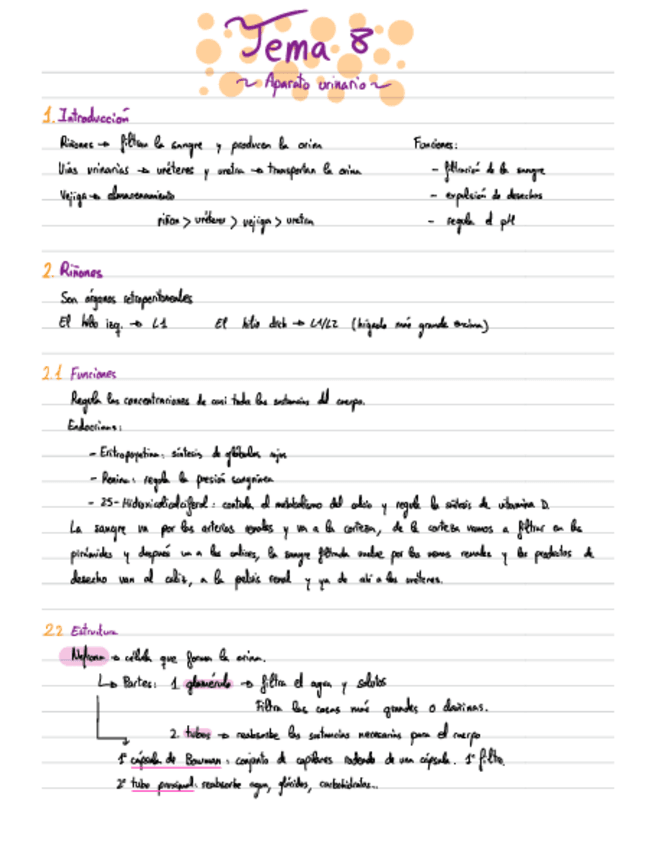 Tema 8
~ Aparato urinario ~
1. Introducción
Riñones → filtran la sangre y producen la orina
Funciones:
Vías urinarias → uréteres y uretra → transportan la orina
- filtración de la sangre
Vejiga → almacenamiento
- expulsión de desechos
riñon > uréteres > vejiga > uretra
- regula el pH
2. Riñones
Son órganos retroperitoneales
El hilio izq. → L1 El hilio dch → L1/L2 (hígado más grande encima)
2.1 Funciones
Regula las concentraciones de casi todas las sustancias del cuerpo.
Endocrinas:
- Eritropoyetina: síntesis de glóbulos rojos
- Renina: regula la presión sanguínea
- 25-Hidroxicolicalciferol: controla el metabolismo del calcio y regula la síntesis de vitamina D.
La sangre va por las arterias renales y va a la corteza, de la corteza vamos a filtrar en las
pirámides y después va a los cálices, la sangre filtrada vuelve por las venas renales y los productos de
desecho van al cáliz, a la pelvis renal y ya de ahí a los uréteres.
2.2 Estructura
Nefrona → célula que forma la orina.
↳ Partes: 1. glomérulo → filtra el agua y solutos
Filtra las cosas más grandes o dañinas.
2. tubos → reabsorbe las sustancias necesarias para el cuerpo
1º cápsula de Bowman: conjunto de capilares rodeado de una cápsula. 1º filtro.
2º tubo proximal: reabsorbe agua, glúcidos, carbohidratos...